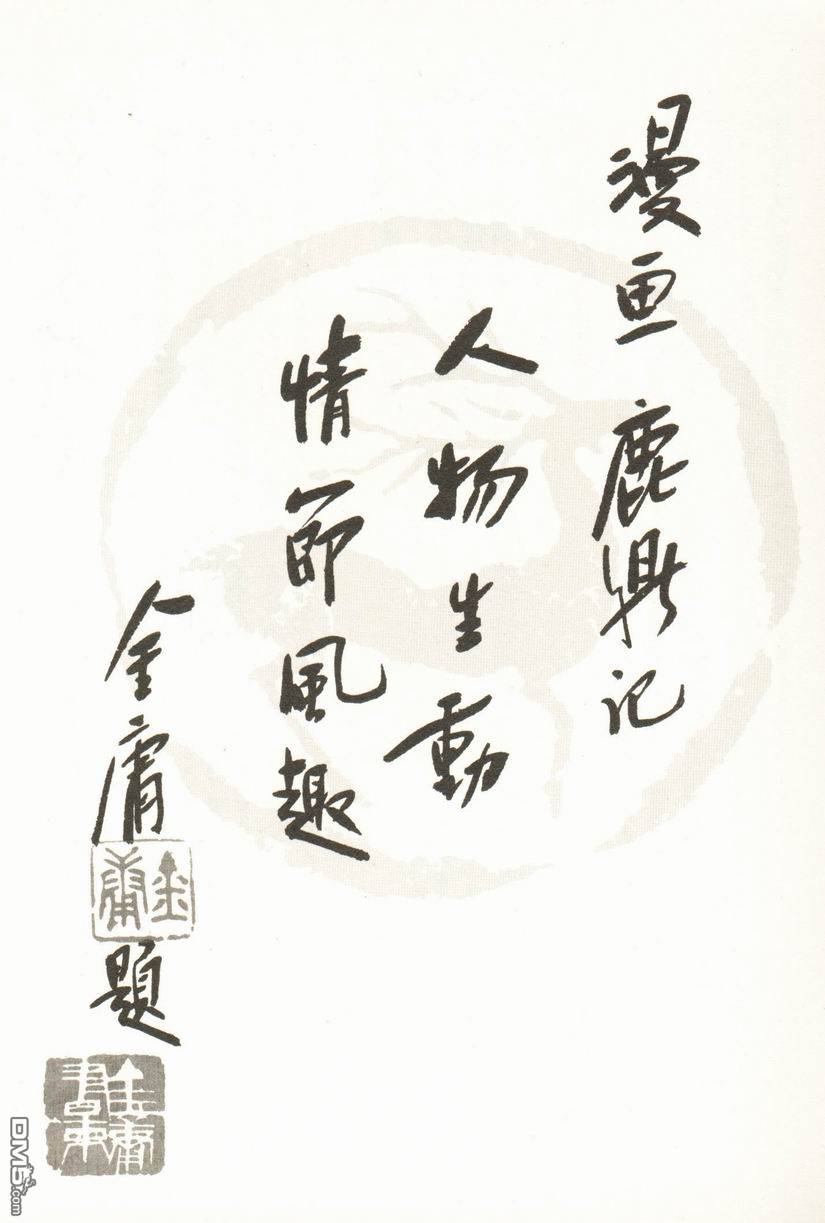 漫画 鹿鼎記
人物生動
情節風趣
金庸題
金庸
DM5.com